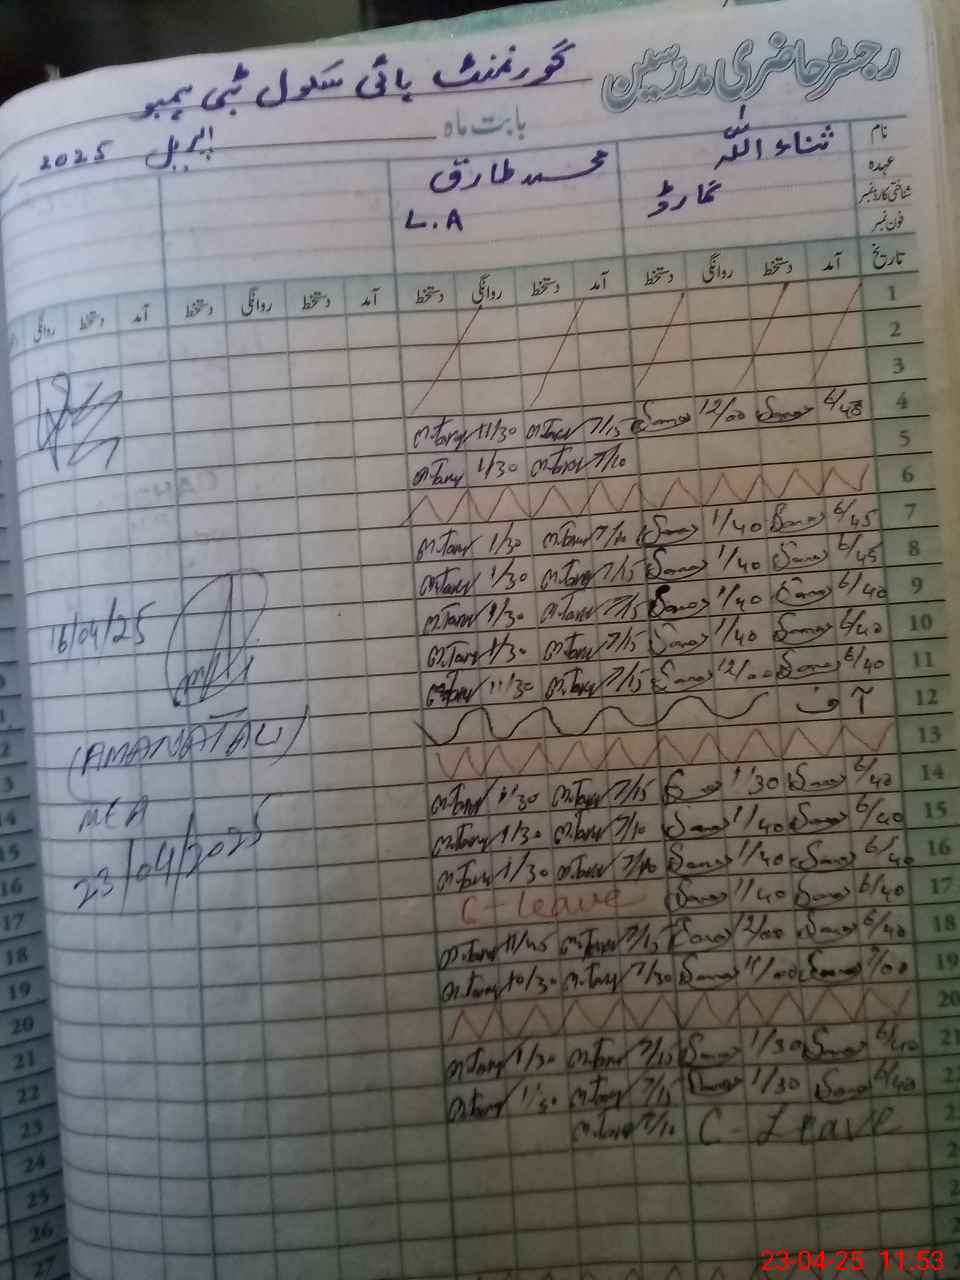 رجسٹر حاضری مدرسین گورنمنٹ ہائی سکول ٹبی ہمبو
بابت ماہ اپریل 2025
نام ثناء اللہ محمد طارق
عہدہ L.A
شناختی کارڈ نمبر
فون نمبر
تاریخ آمد دستخط روانگی دستخط آمد دستخط روانگی دستخط آمد دستخط روانگی دستخط آمد دستخط روانگی
1
2
3
4 6/40 Sana 12/00 Sana 7/15 m.Tariq 11/30 m.Tariq
5 7/10 m.Tariq 1/30 m.Tariq
6
7 6/45 Sana 1/40 Sana 7/10 m.Tariq 1/30 m.Tariq
8 6/45 Sana 1/40 Sana 7/15 m.Tariq 1/30 m.Tariq
9 6/40 Sana 1/40 Sana 7/15 m.Tariq 1/30 m.Tariq
10 6/40 Sana 1/40 Sana 7/15 m.Tariq 1/30 m.Tariq
11 6/40 Sana 12/00 Sana 7/15 m.Tariq 11/30 m.Tariq
12 آف
13
14 6/40 Sana 1/30 Sana 7/15 m.Tariq 1/30 m.Tariq
15 6/40 Sana 1/40 Sana 7/10 m.Tariq 1/30 m.Tariq
16 6/40 Sana 1/40 Sana 7/10 m.Tariq 1/30 m.Tariq
17 6/40 Sana 1/40 Sana C-leave
18 6/40 Sana 12/00 Sana 7/15 m.Tariq 11/45 m.Tariq
19 7/00 Sana 11/00 Sana 7/30 m.Tariq 10/30 m.Tariq
20
21 6/40 Sana 1/30 Sana 7/15 m.Tariq 1/30 m.Tariq
22 6/40 Sana 1/30 Sana 7/15 m.Tariq 1/30 m.Tariq
C-Leave 7/10 m.Tariq
16/04/25
(AMANATALI)
MEA
23/04/2025
15
16
17
18
19
20
21
22
23
24
25
26
27
23-04-25 11.53